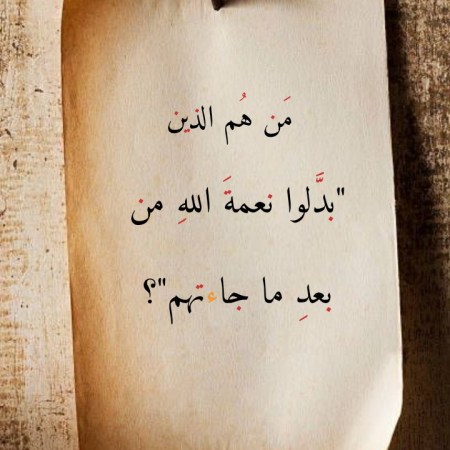 مَن هُم الذين
"بدَّلوا نعمةَ اللهِ من
بعدِ ما جاءتهم"؟